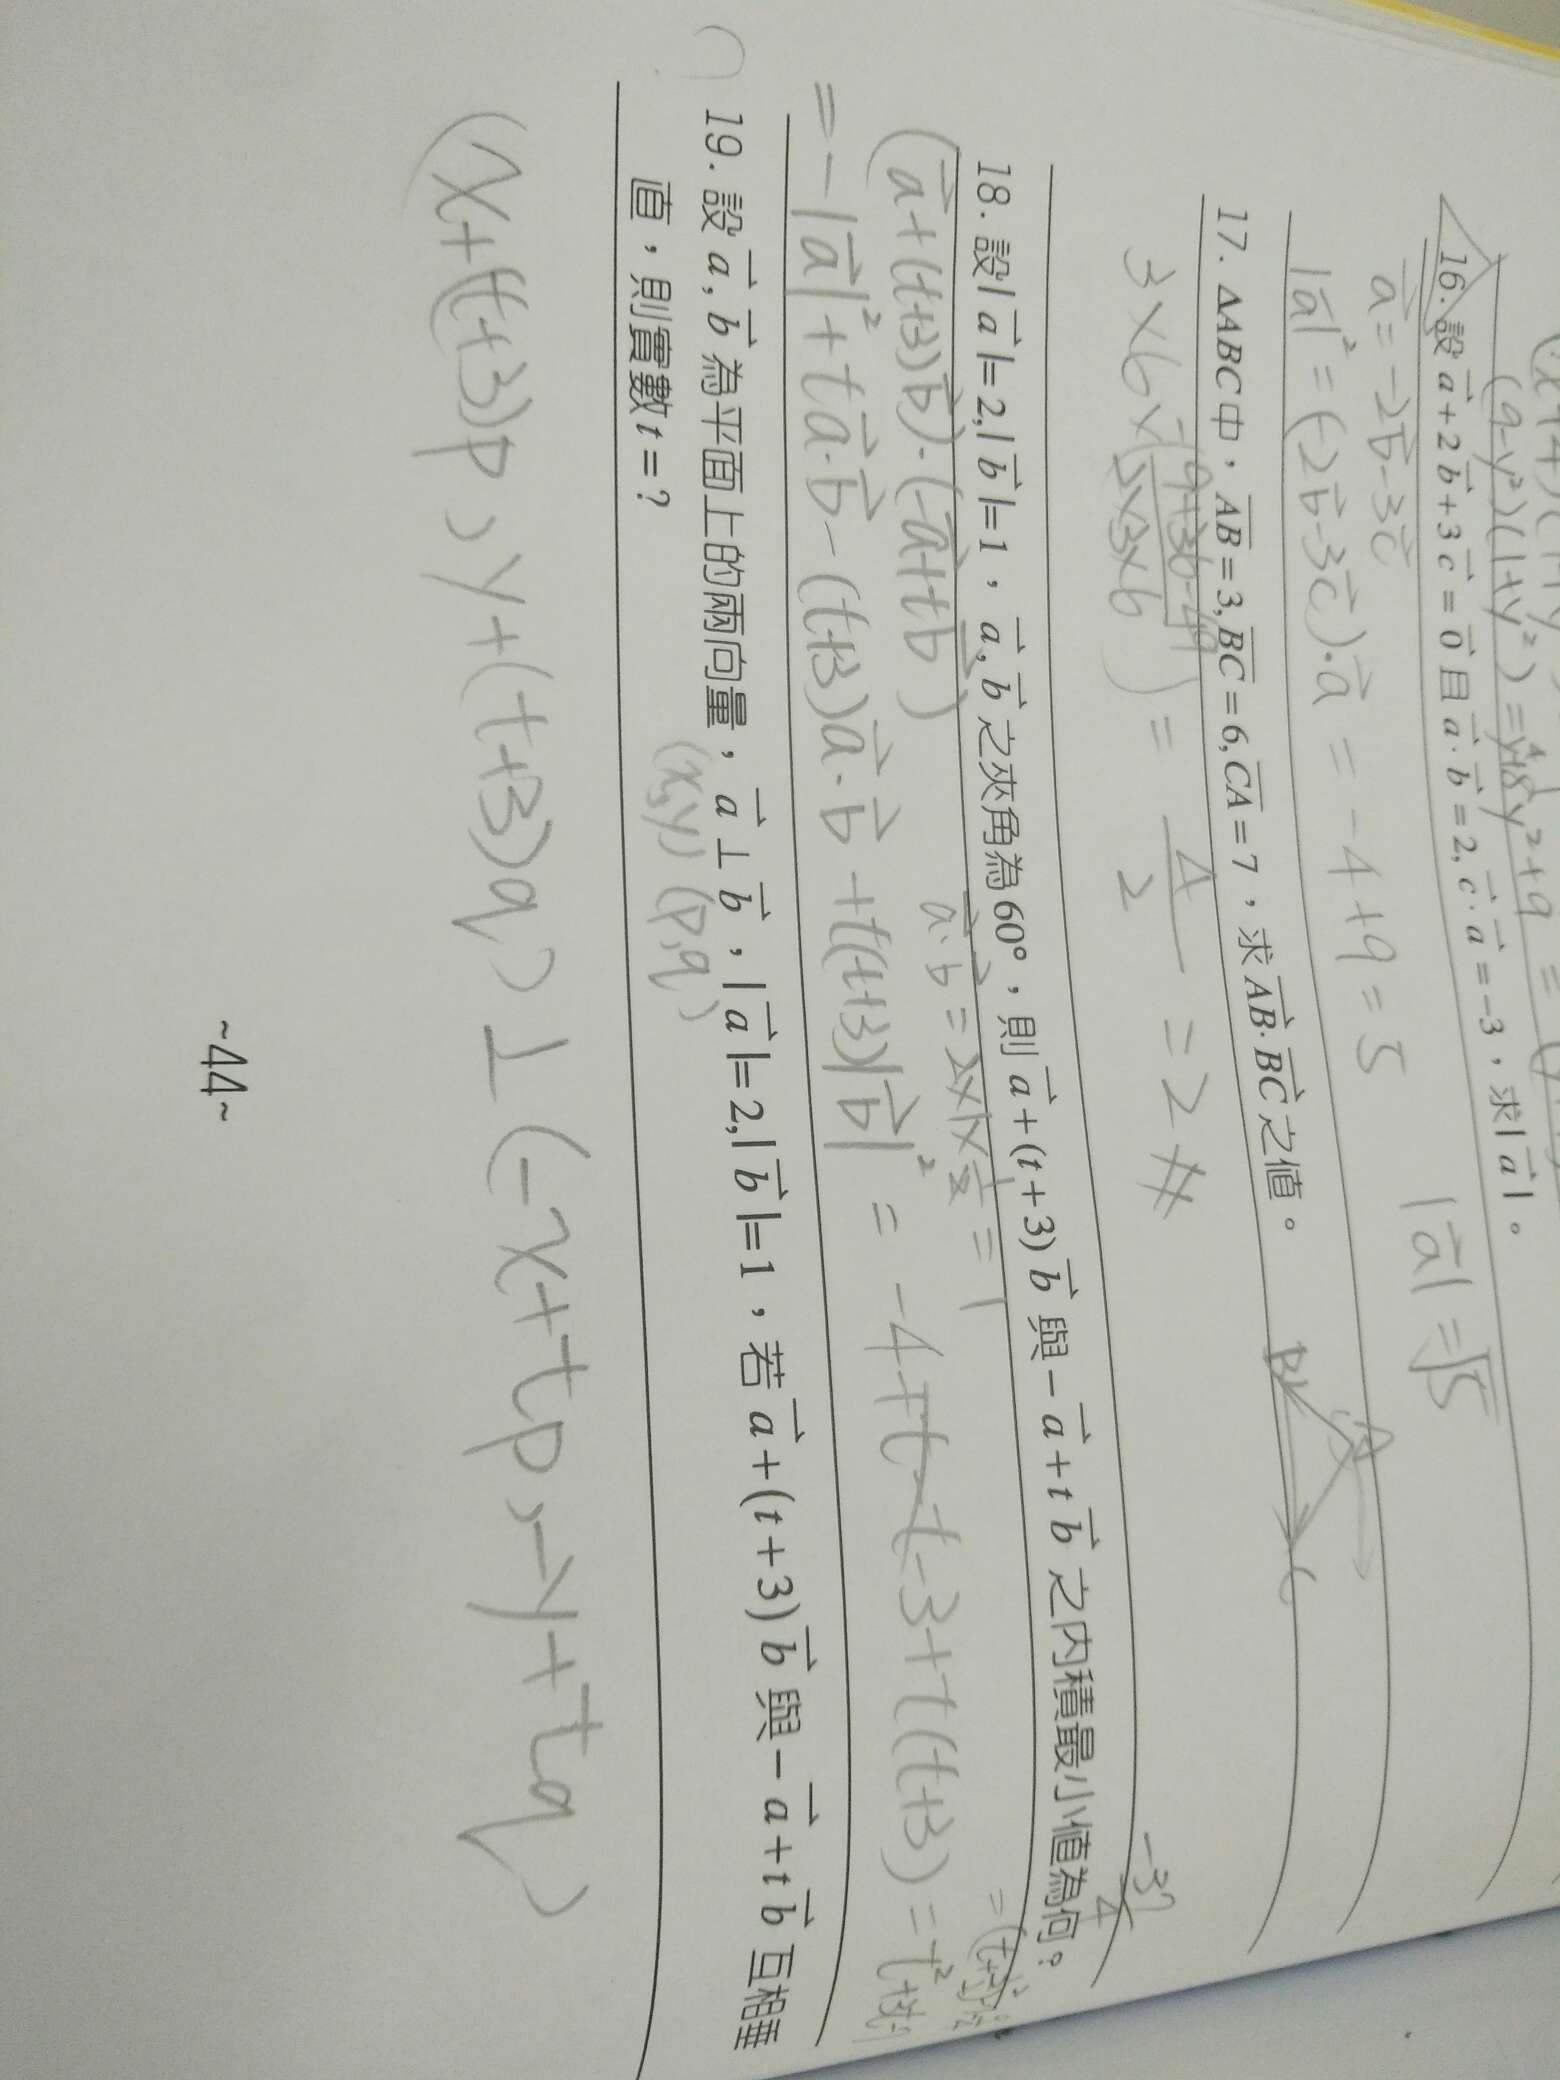 (9-y²)(1+y²)=y⁴+8y²+9=
16.設a⃗+2b⃗+3c⃗=0⃗且a⃗·b⃗=2,c⃗·a⃗=-3，求|a⃗|。
a⃗=-2b⃗-3c⃗
|a⃗|²=(-2b⃗-3c⃗)·a⃗=-4+9=5
|a⃗|=√5
17. ΔABC中，AB=3,BC=6,CA=7，求AB⃗·BC⃗之值。
3×6×(-(9+36-49)/(2×3×6))=4/2=2#
B A C
18.設|a⃗|=2,|b⃗|=1，a⃗,b⃗之夾角為60°，則a⃗+(t+3)b⃗與-a⃗+tb⃗之內積最小值為何?
-37/4
(a⃗+(t+3)b⃗)·(-a⃗+tb⃗)
a⃗·b⃗=2×1×1/2=1
=-|a⃗|²+ta⃗·b⃗-(t+3)a⃗·b⃗+t(t+3)|b⃗|²=-4+t-t-3+t(t+3)=t²+3t-7
19.設a⃗,b⃗為平面上的兩向量，a⃗⊥b⃗，|a⃗|=2,|b⃗|=1，若a⃗+(t+3)b⃗與-a⃗+tb⃗互相垂
直，則實數t=?
(x,y) (p,q)
(x+(t+3)p,y+(t+3)q)⊥(-x+tp,-y+tq)
~44~